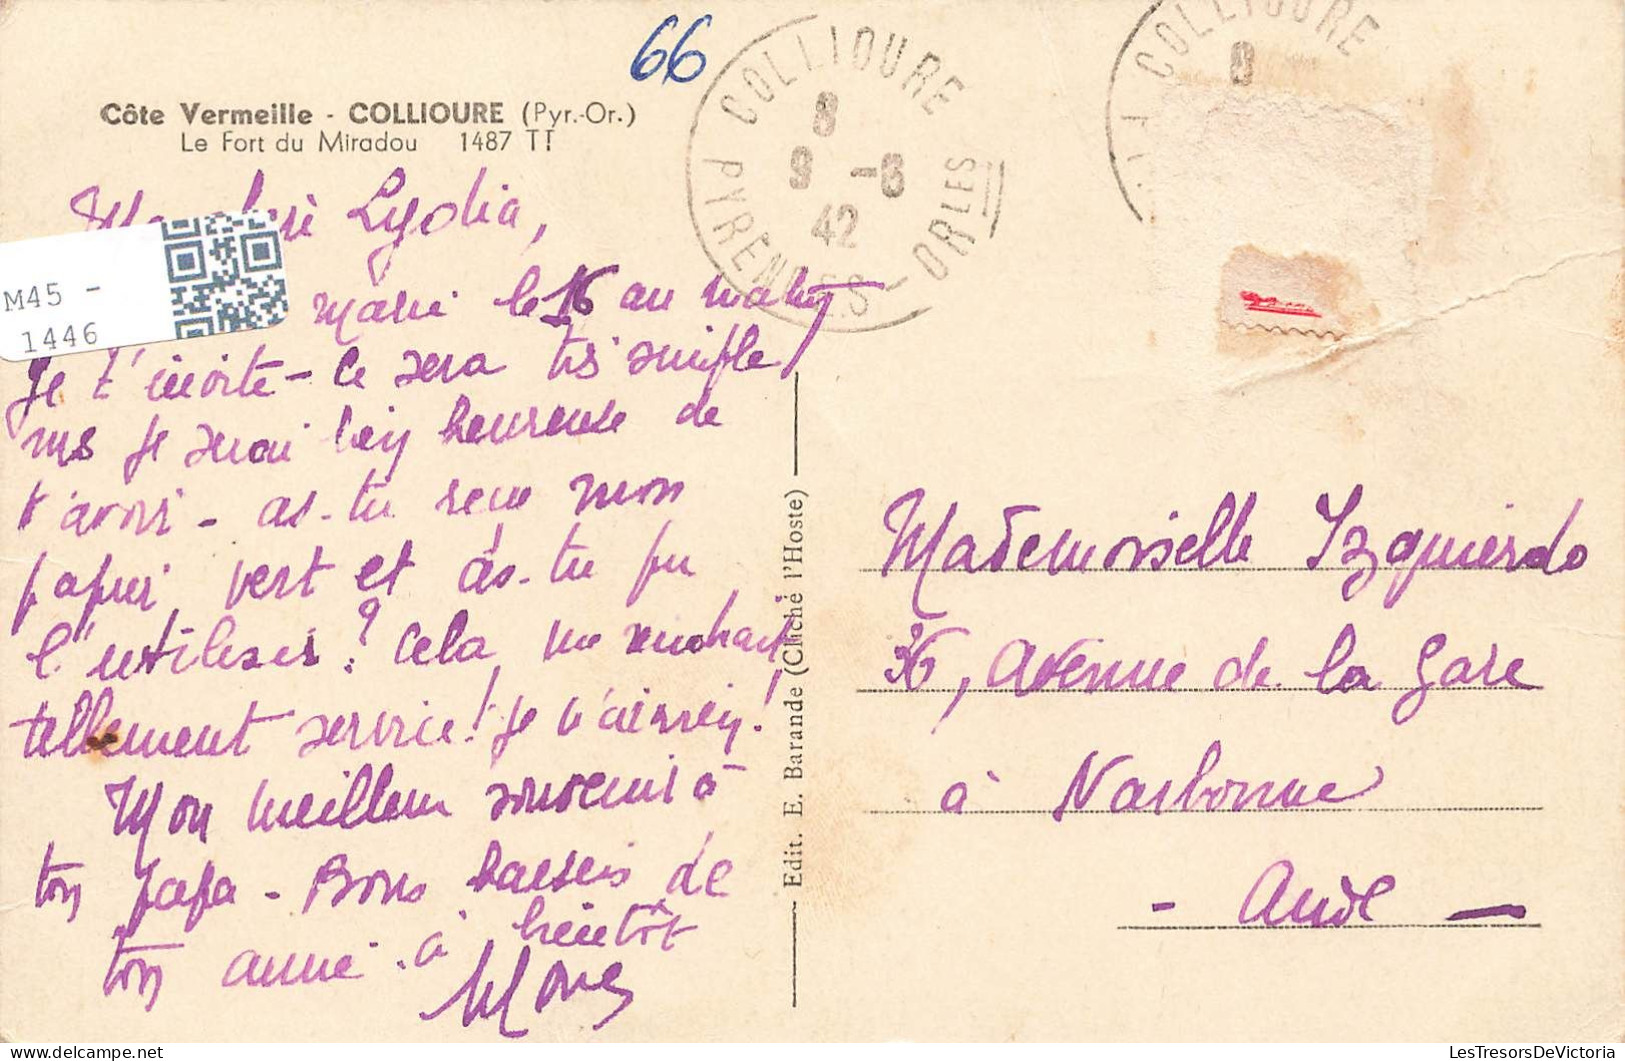 66
Côte Vermeille - COLLIOURE (Pyr.-Or.)
Le Fort du Miradou 1487 TT
COLLIOURE
8
9 -6
42
PYRENEES - ORLES
COLLIOURE
8
M45 -
1446
Lydia,
marie le 16 au matin
Je t'invite - ce sera très simple
ms je serai bien heureuse de
t'avoir - as-tu reçu mon
papier vert et as-tu pu
l'utiliser ? Cela me rendrait
tellement service ! Je n'ai rien !
Mon meilleur souvenir à
ton papa - Bons baisers de
ton amie . à bientôt
Edit. E. Barande (Cliché l'Hoste)
Mademoiselle Izquierdo
36, Avenue de la Gare
à Narbonne
- Aude -
LesTresorsDeVictoria.com